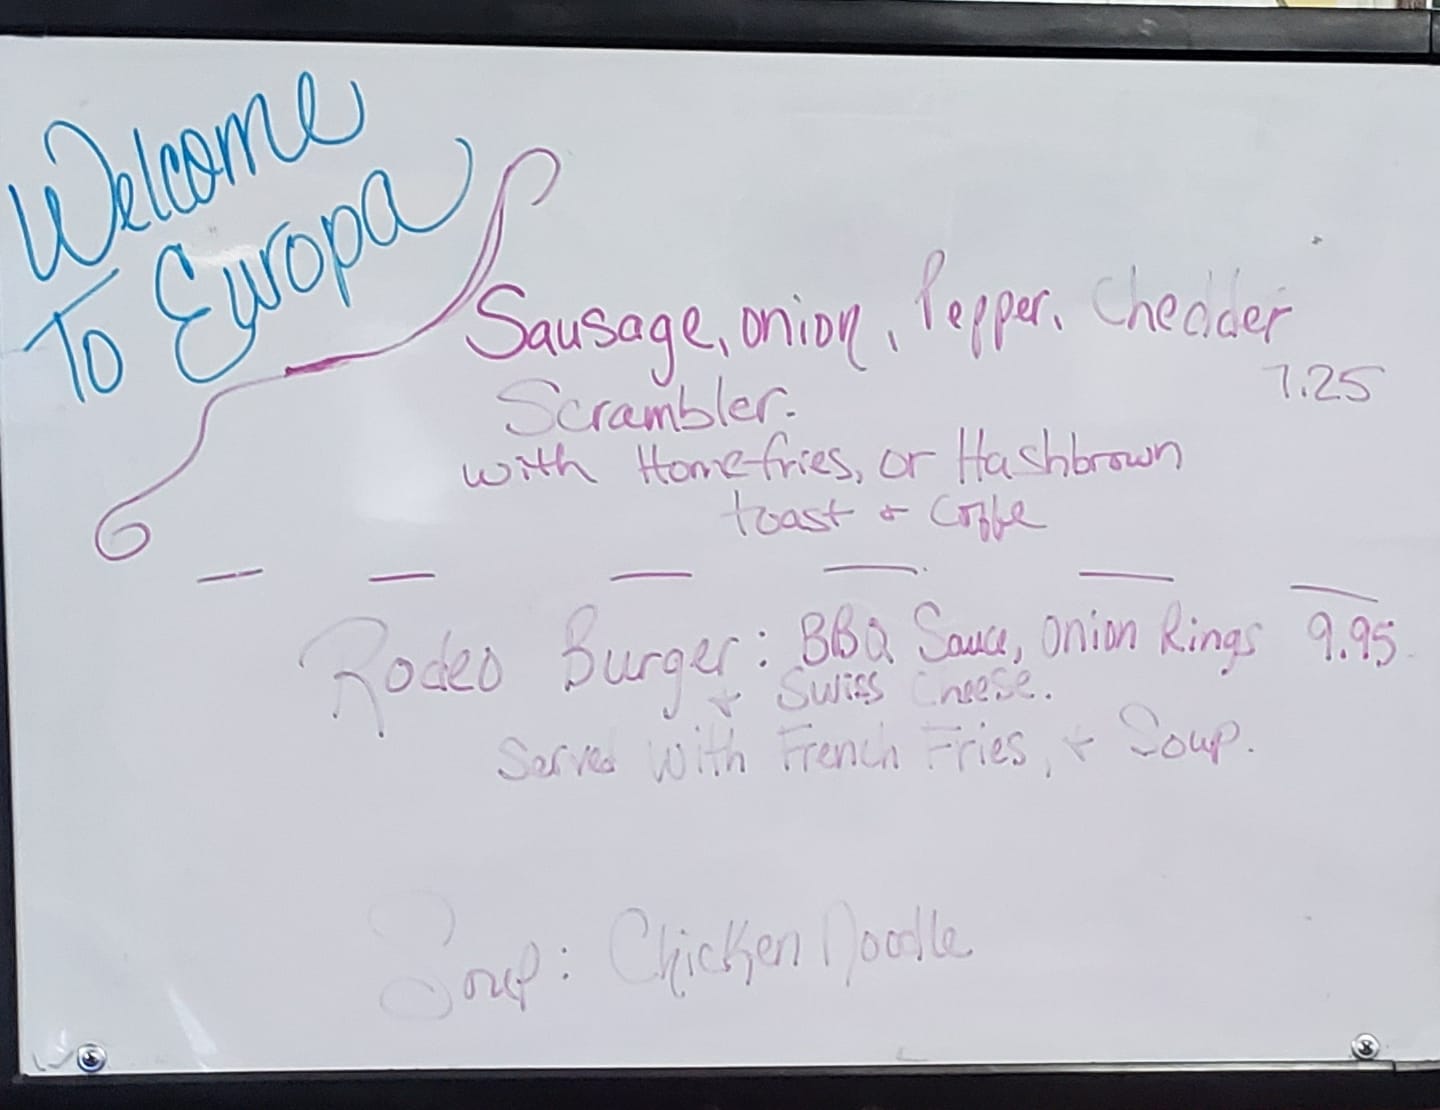 Welcome
To Europa
Sausage, onion, Pepper, Chedder
7.25
Scrambler.
with Homefries, or Hashbrown
toast & Coffe
Rodeo Burger: BBQ Sauce, Onion Rings 9.95
& Swiss Cheese.
Served With French Fries, & Soup.
Soup: Chicken Noodle